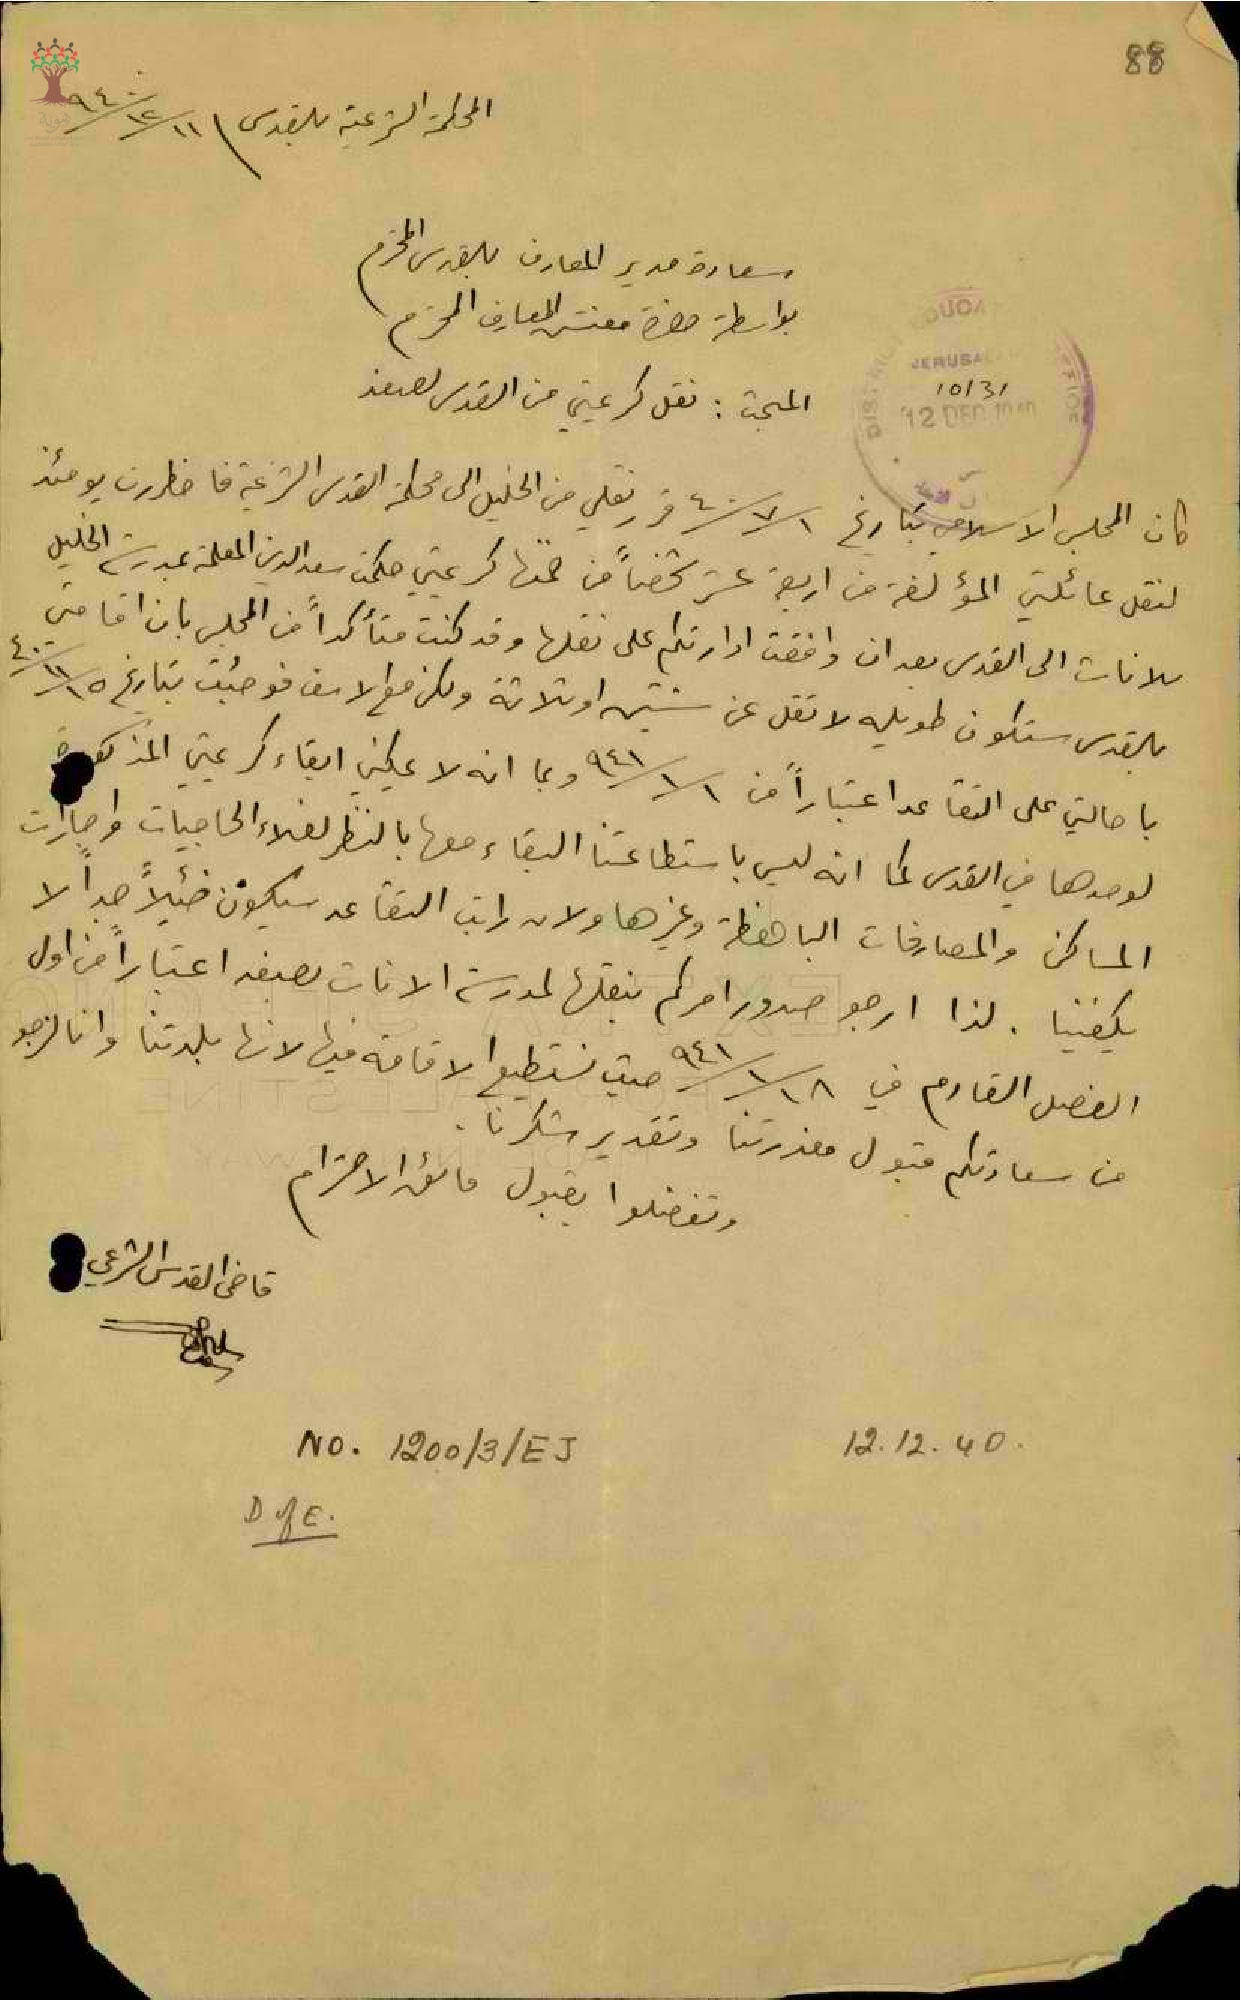 88
المحكمة الشرعية بالقدس ١١/١٢/٩٤٠
سعادة مدير المعارف بالقدس المحترم
بواسطة حضرة مفتش المعارف المحترم
JERUSA
10/31
12 DEC 1940
المبحث : نقل كريمتي من القدس لصفد
كان المجلس الاسلامي بتاريخ ١/٧/٤٠ قرر نقلي من الخليل الى محكمة القدس الشرعية فاضطررت يومئذ
لنقل عائلتي المؤلفة من اربعة عشر شخصاً من ضمنها كريمتي حكمت سعد الدين المعلمة بمدرسة الخليل
للاناث الى القدس بعد ان وافقت ادارتكم على نقلها وقد كنت متأكداً من المجلس بان اقامتي
بالقدس ستكون طويله لا تقل عن سنتين او ثلاثة ولكن مع الاسف فوجئت بتاريخ ١٥/١١/٤٠
باحالتي على التقاعد اعتباراً من ١/١/٩٤١ وبما انه لا يمكني ابقاء كريمتي المذكورة
لوحدها في القدس كما انه ليس باستطاعتنا البقاء معها بالنظر لغلاء الحاجيات واجارات
المساكن والمصارفات الباهظة وغيرها ولان راتب التقاعد سيكون ضئيلاً جداً لا
يكفينا . لذا ارجو صدور امركم بنقلها لمدرسة الاناث بصفد اعتباراً من اول
الفصل القادم في ١٨/١/٩٤١ حيث نستطيع الاقامة فيها لانها بلدتنا وانا لنرجو
من سعادتكم قبول معذرتنا وتقدير شكرنا .
وتفضلوا بقبول فائق الاحترام
قاضي القدس الشرعي
No. 1200/3/EJ 12.12.40.
D of E.